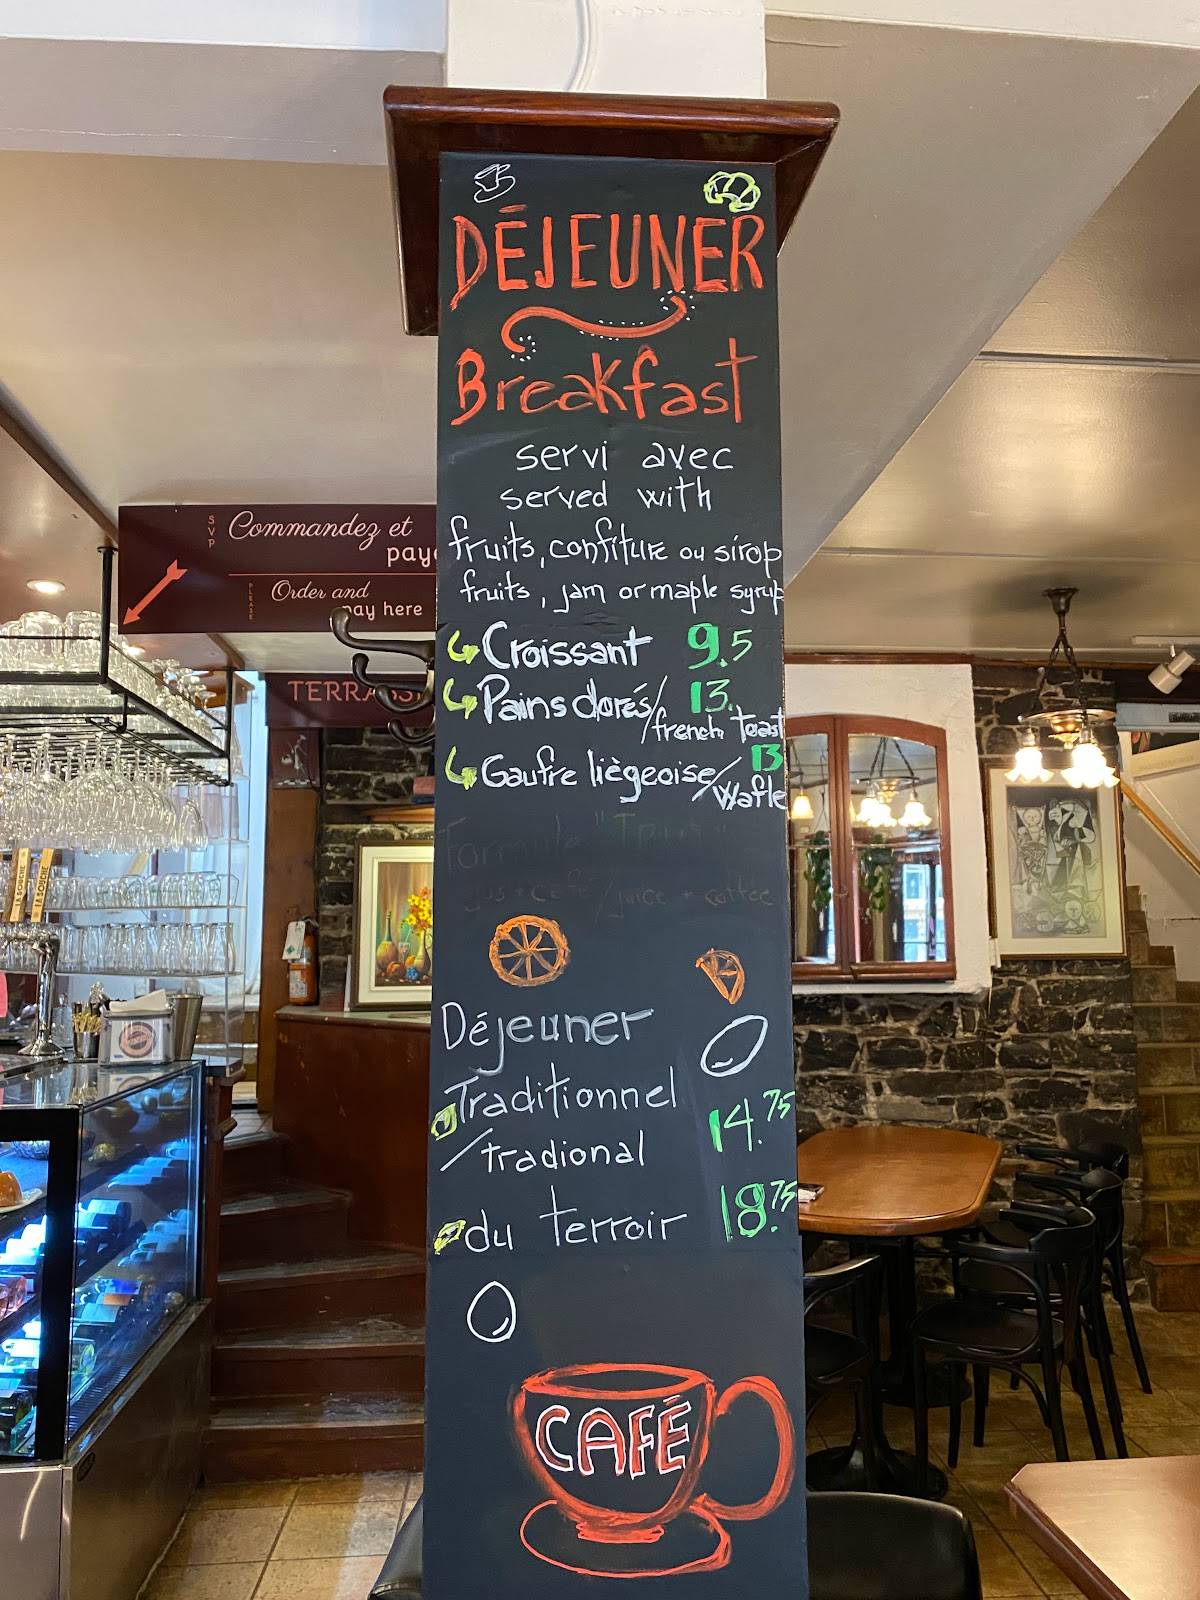 DÉJEUNER
Breakfast
servi avec
served with
fruits, confiture ou sirop
fruits, jam or maple syrup
Croissant 9.5
Pains dorés/ 13.
french toast
Gaufre liègeoise/ 13
Wafle
Formule
jus + café / juice + coffee
Déjeuner
Traditionnel
/tradional 14.75
du terroir 18.75
CAFÉ
SVP
Commandez et
paye
PLEASE
Order and
pay here
TERRASS
LA SOUCHE
LA SOUCHE